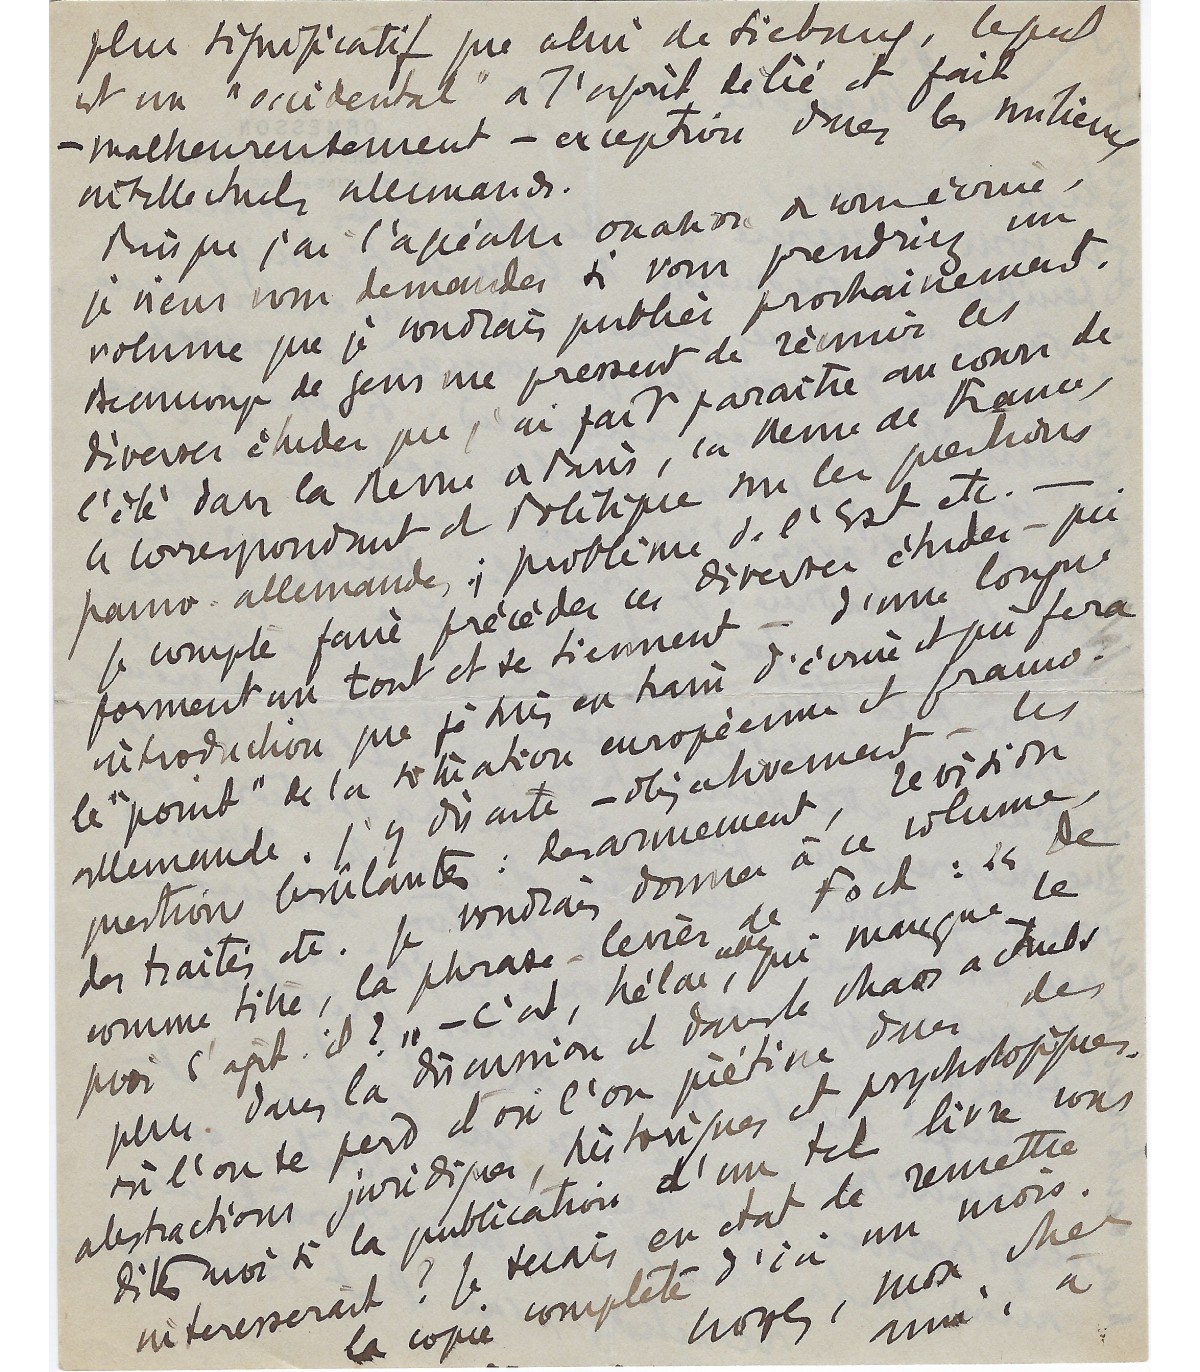 plus significatif que celui de Sieburg, lequel
est un "occidental" à l'esprit délié et fait
– malheureusement – exception dans les milieux
intellectuels allemands.
Puisque j'ai l'agréable occasion de vous écrire,
je viens vous demander si vous prendriez un
volume que je voudrais publier prochainement.
Beaucoup de gens me pressent de réunir les
diverses études que j'ai fait paraître au cours de
l'été dans la Revue de Paris, la Revue de France,
le Correspondant et Politique sur les questions
franco-allemandes, problème de l'Est etc. –
Je compte faire précéder ces diverses études – qui
forment un tout et se tiennent – d'une longue
introduction que je suis en train d'écrire et qui fera
le "point" de la situation européenne et franco-
allemande. J'y discute – objectivement – les
questions brûlantes : désarmement, revision
des traités etc. Je voudrais donner à ce volume,
comme titre, la phrase-levier de Foch : "De
quoi s'agit-il ?" – C'est, hélas, ce qui manque le
plus dans la discussion et dans le chaos actuels
où l'on se perd et où l'on piétine dans des
abstractions juridiques, historiques et psychologiques.
Dites-moi si la publication d'un tel livre vous
intéresserait ? Je serais en état de remettre
la copie complète d'ici un mois.
Croyez, mon cher
ami, à